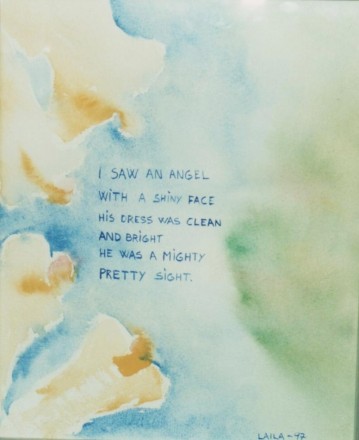 I SAW AN ANGEL
WITH A SHINY FACE
HIS DRESS WAS CLEAN
AND BRIGHT
HE WAS A MIGHTY
PRETTY SIGHT.
LAILA-97